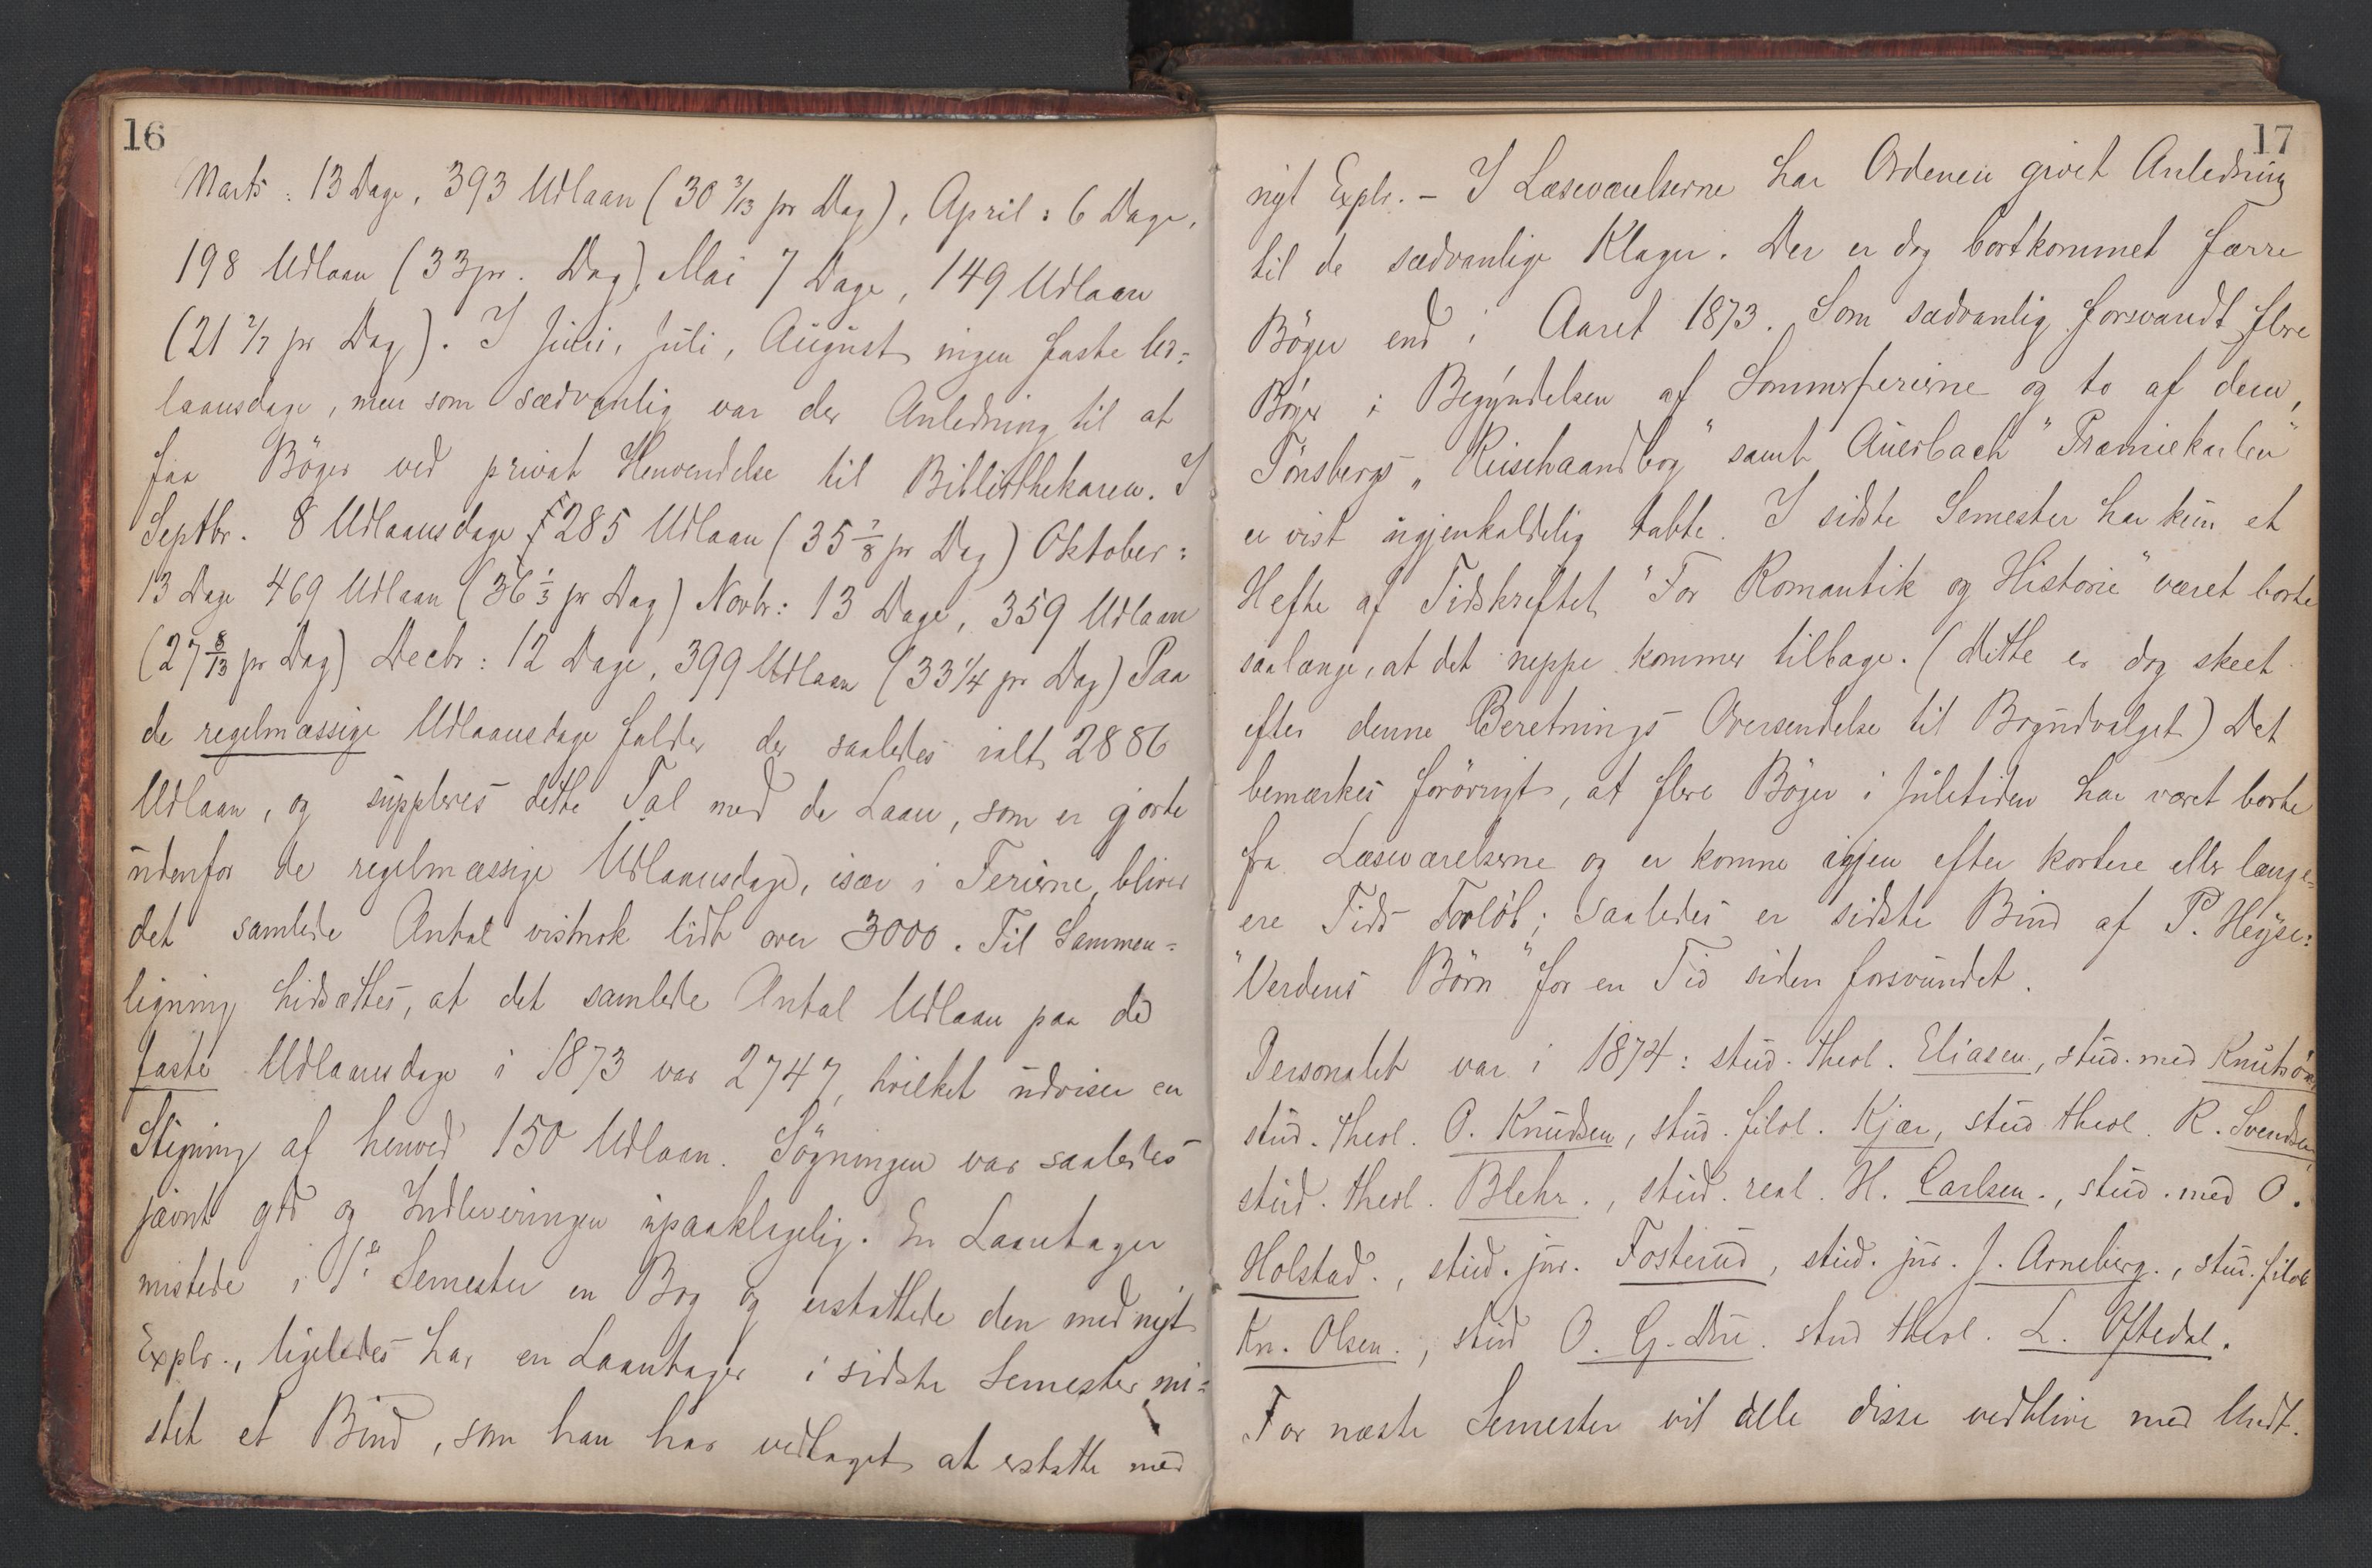 16
Marts: 13 Dage, 393 Udlaan (30 3/13 pr Dag), April: 6 Dage,
198 Udlaan (33 pr. Dag), Mai 7 Dage, 149 Udlaan
(21 2/7 pr Dag). I Juni, Juli, August ingen faste Ud=
laansdage, men som sædvanlig var der Anledning til at
faa Böger ved privat Henvendelse til Bibliothekaren. I
Septbr. 8 Udlaansdage 285 Udlaan (35 7/8 pr Dag) Oktober:
13 Dage 469 Udlaan (36 1/3 pr Dag) Novbr: 13 Dage, 359 Udlaan
(27 8/13 pr Dag) Decbr: 12 Dage, 399 Udlaan (33 1/4 pr Dag) Paa
de regelmæssige Udlaansdage falder der saaledes ialt 2886
Udlaan, og suppleres dette Tal med de Laan, som er gjorte
udenfor de regelmæssige Udlaansdage, især i Ferierne, bliver
det samlede Antal vistnok lidt over 3000. Til Sammen=
ligning hidsættes, at det samlede Antal Udlaan paa de
faste Udlaansdage i 1873 var 2747, hvilket udviser en
Stigning af henved 150 Udlaan. Sögningen var saaledes
jævnt god og Indleveringen upaaklagelig. En Laantager
mistede i 1ste Semester en Bog og erstattede den med nyt
Explr., ligeledes har en Laantager i sidste Semester mi=
stet et Bind, som han har vedtaget at erstatte med
17
nyt Explr. – I Læseværelserne har Ordenen givet Anledning
til de sædvanlige Klager. Der er dog bortkommet færre
Böger end i Aaret 1873. Som sædvanlig forsvandt flere
Böger i Begyndelsen af Sommerferierne og to af dem,
Tönsbergs „Reisehaandbog" samt Auerbach "Præmiekarlen"
er vist ugjenkaldelig tabte. I sidste Semester har kun et
Hefte af Tidskriftet "For Romantik og Historie" været borte
saalænge, at det neppe kommer tilbage. (Dette er dog skeet
efter denne Beretnings Oversendelse til Bogudvalget) Det
bemærkes forövrigt, at flere Böger i Juletiden har været borte
fra Læseværelserne og er komne igjen efter kortere eller læng=
ere Tids Forlöb; saaledes er sidste Bind af P. Heyse:
"Verdens Börn" for en Tid siden forsvundet.
Personalet var i 1874: stud. theol. Eliasen, stud. med Knutsön,
stud. theol. O. Knudsen, stud. filol. Kjær, stud theol. R. Svendsen,
stud. theol. Blehr., stud. real. H. Carlsen., stud. med O.
Holstad., stud. jur. Fosterud, stud. jur. J. Arneberg., stu. filol
Kn. Olsen., stud O. G. Due. stud theol. L. Oftedal.
For næste Semester vil alle disse vedblive med Undt.